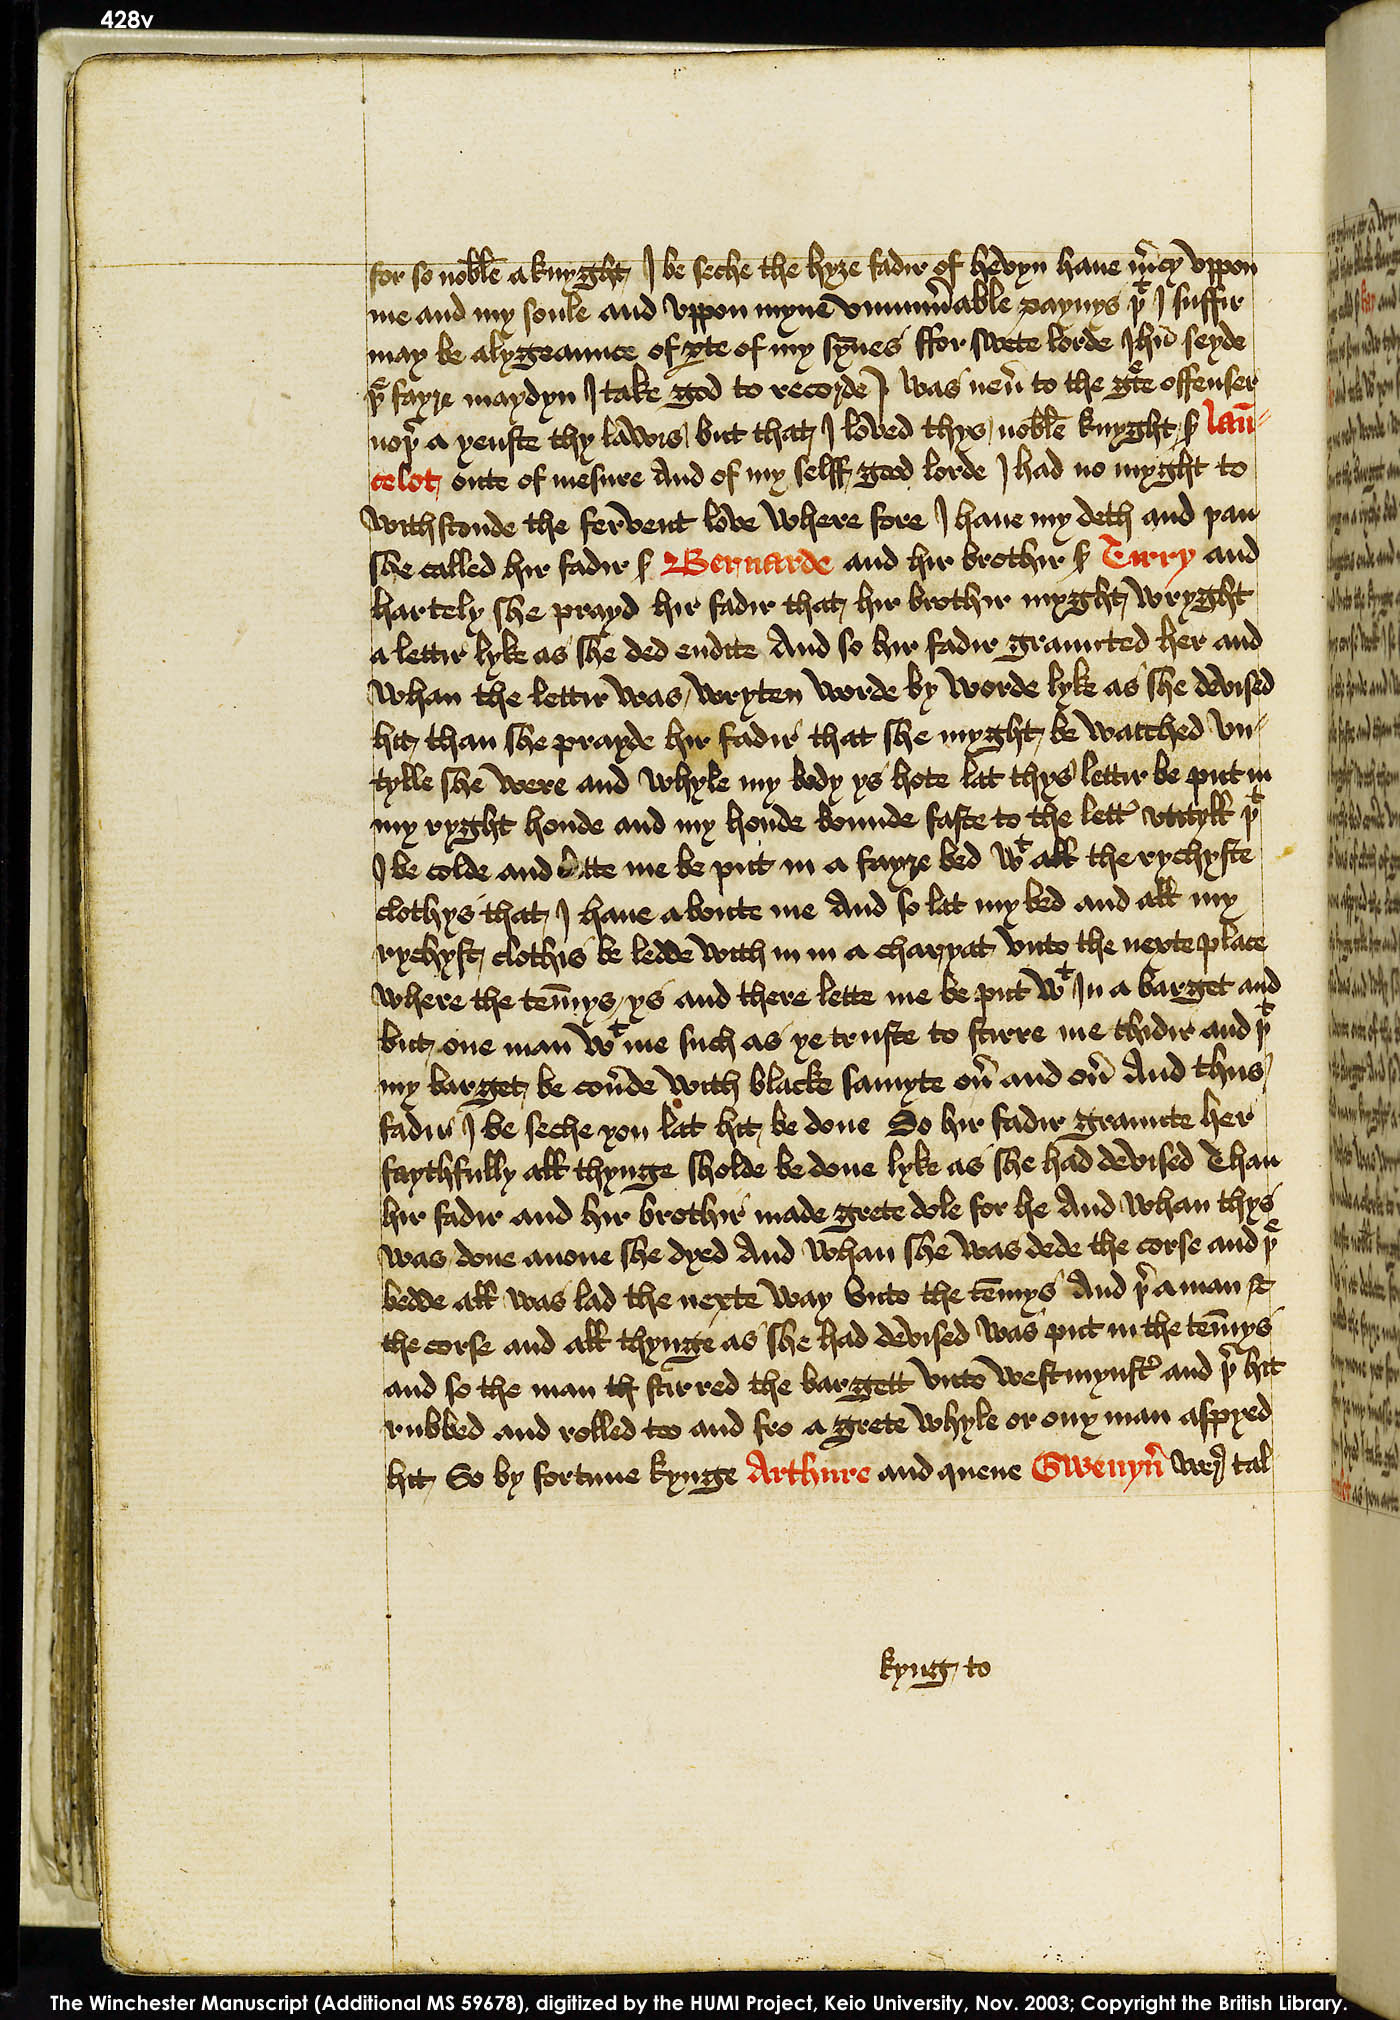 428v
for so noble a knyght I be seche the hyze fadir of hevyn haue mercy vppon
me and my soule and vppon myne vnnumerable paynys þt I suffir
may be alygeaunce of pte of my synnes ffor swete lorde Jhu seyde
þe fayre maydyn I take god to recorde I was neuer to the grete offenser
noþer a yenste thy lawis but that I loved thys noble knyght sir Laun
celot oute of mesure And of my selff good lorde I had no myght to
withstonde the fervent love where fore I haue my deth and þan
she called hir fadir sir Bernarde and hir brothir sir Tirry and
hartely she prayd hir fadir that hir brothir myght wryght
a lettir lyke as she ded endite And so hir fadir graunted her and
whan the lettir was wryten worde by worde lyke as she devised
hit than she prayde hir fadir that she myght be wacched vn
tylle she were and whyle my body ys hote lat thys lettir be put in
my ryght honde and my honde bounde faste to the letter vntyll þt
I be colde and lette me be put in a fayre bed wt all the rychyste
clothys that I haue a boute me And so lat my bed and all my
rychyst clothis be ledde with in in a charyat vnto the nexte place
where the temmys ys and there lette me be put wt In a barget and
but one man wt me such as ye truste to stirre me thidir and þt
my barget be couerde with blacke samyte ouer and ouer And thus
fadir I be seche you lat hit be done So hir fadir graunte her
faythfully all thynge sholde be done lyke as she had devised Than
hir fadir and hir brothir made grete dole for he And whan thys
was done anone she dyed And whan she was dede the corse and þe
bedde all was lad the nexte way vnto the temmys And þer a man &
the corse and all thynge as she had devised was put in the temmys
and so the man th stirred the bargett vnto westmynster and þer hit
rubbed and rolled too and fro a grete whyle or ony man aspyed
hit So by fortune kynge Arthure and quene Gwenyuer were tal
kyng to
The Winchester Manuscript (Additional MS 59678), digitized by the HUMI Project, Keio University, Nov. 2003; Copyright the British Library.